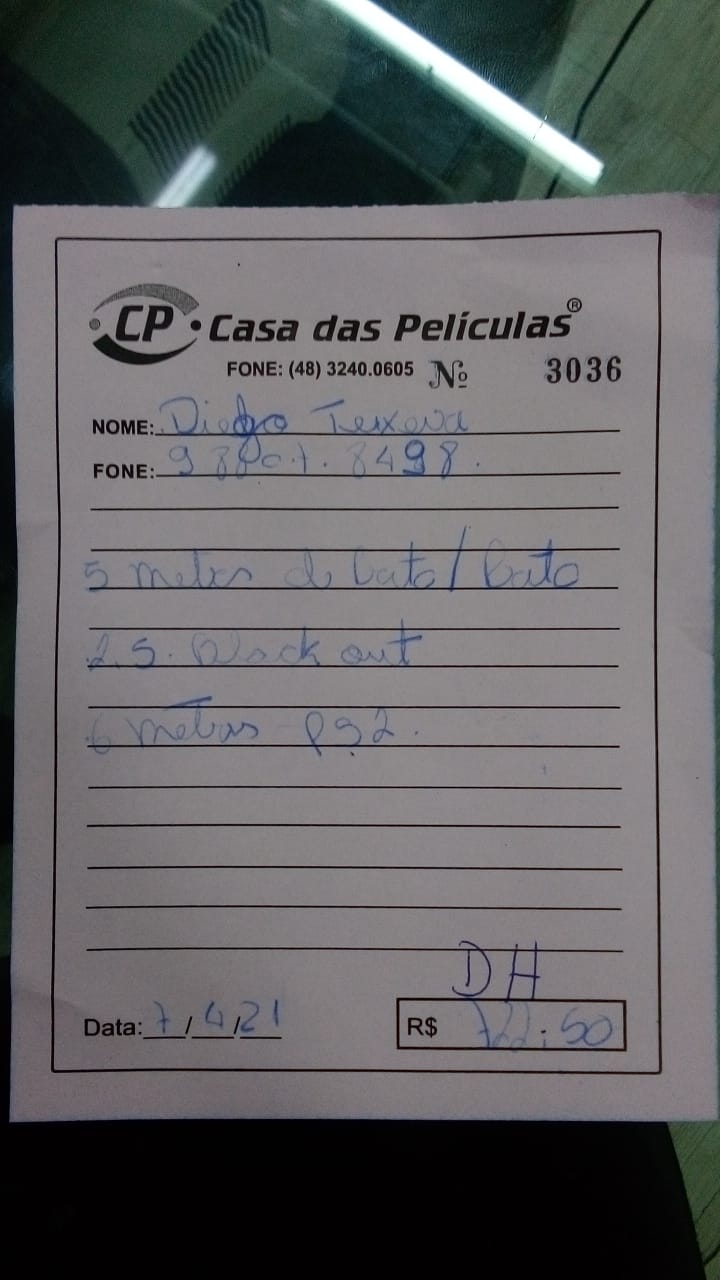 CP • Casa das Películas®
FONE: (48) 3240.0605 Nº 3036
NOME: Diego Teixeira
FONE: 8498.
5 metros de
2.5. Black out
6 metros ps2.
DH
Data: 7/4/21 R$ 722:50